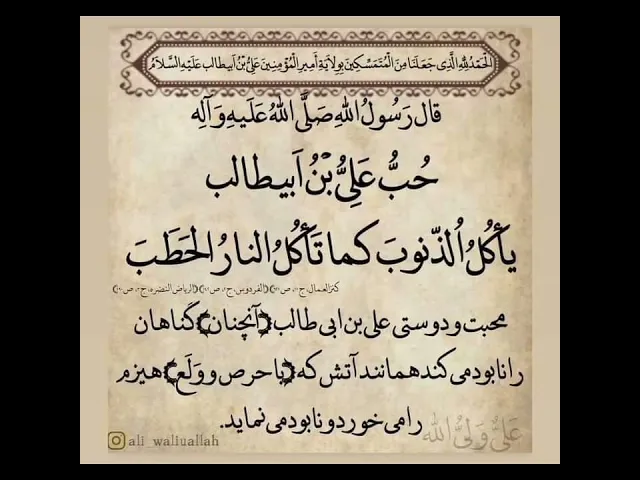 الحَمدُ لِلّهِ الَّذِی جَعَلَنَا مِنَ الْمُتَمَسِّکِینَ بِوِلَایَةِ اَمِیرِ الْمُؤْمِنِینَ عَلِیِّ بْنِ اَبیطالب عَلَیهِ السَّلاَمُ
قال رَسُولُ اللهِ صَلَّی اللهُ عَلَیهِ وَ آلِه
حُبُّ عَلِیُّ بْنُ اَبیطالب
یأکُلُ الذّنوبَ کما تَأکُلُ النارُ الحَطَبَ
کنزالعمال، ج ص الفردوس، ج ص الریاض النضره، ج ص
محبت و دوستی علی بن ابی طالب (آنچنان) گناهان
را نابود می کند همانند آتش که (با حرص و وَلَع) هیزم
را می خورد و نابود می نماید.
عَلیٌّ وَلیُّ الله
ali_waliuallah